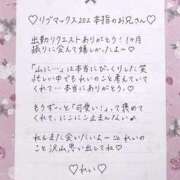 ♡リブマックス202 本指のお兄さん♡
出勤リクエストありがとう！1ヶ月
振りに会えて嬉しかったよー♡
「山に…」は本当にびっくりした笑
忙しい中でもれいのこと考えていて
くれて…本当にありがとう♡
もうずーっと「可愛い！」って褒めて
くれて、にこにこ止まんないよ♡
れもまた会いたいよー♡れいの
こと沢山思い出してね♡
♡れい♡